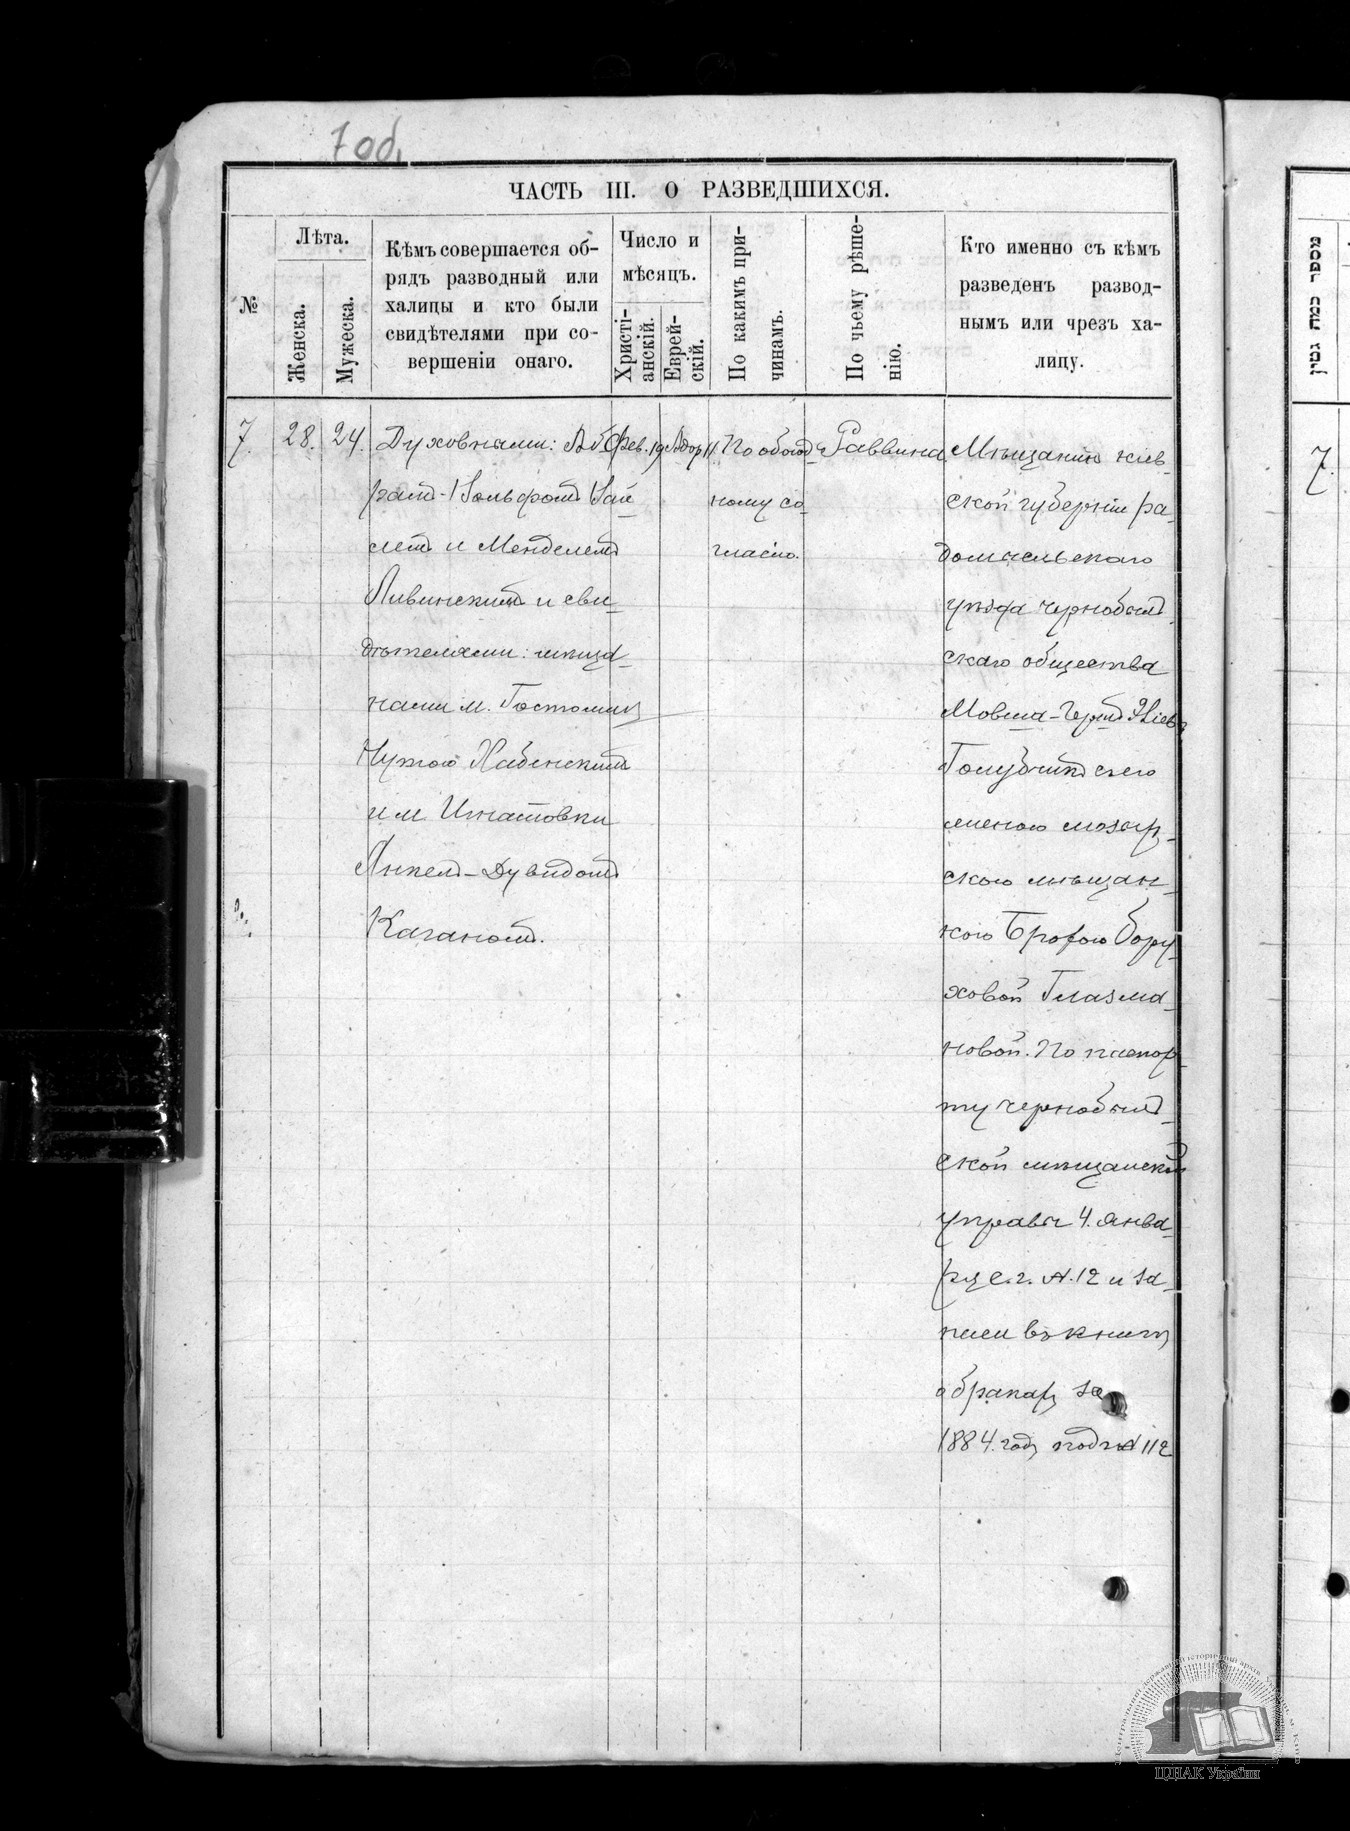 7 об.
ЧАСТЬ III. О РАЗВЕДШИХСЯ.
№
Лѣта.
Женска.
Мужеска.
Кѣмъ совершается об-
рядъ разводный или
халицы и кто были
свидѣтелями при со-
вершеніи онаго.
Число и
мѣсяцъ.
Христі-
анскій.
Еврей-
скій.
По какимъ при-
чинамъ.
По чьему рѣше-
нію.
Кто именно съ кѣмъ
разведенъ развод-
нымъ или чрезъ ха-
лицу.
7.
28.
24.
Духовными: Аб
рамъ-Вольфомъ
и Менделемъ
Ливинскимъ и сви-
дѣтелями: мѣща-
нами м. Гостомля
Нутою Хабенскимъ
и м Игнатовки
Янкелъ-Дувидомъ
Каганомъ.
Фев. 19
Адор 11.
По обоюд-
ному со-
гласію.
Раввина
Мѣщанинъ кіев-
ской губерніи ра-
домысльскаго
уѣзда чернобыл-
скаго общества
Мовша-Герш
Голубчикъ съ его
женою мозыр-
скою мѣщан-
кою Брохою Бору-
ховой Глазма-
новой. По паспор-
ту чернобыл-
ской мѣщанской
управы 4. Янва-
ря с.г. №.12 и за-
писи въ книгѣ
о бракахъ за
1884. годъ подъ № 112
מספר כמה גטין
7.
Центральний державний історичний архів України, м. Київ
ЦДІАК України